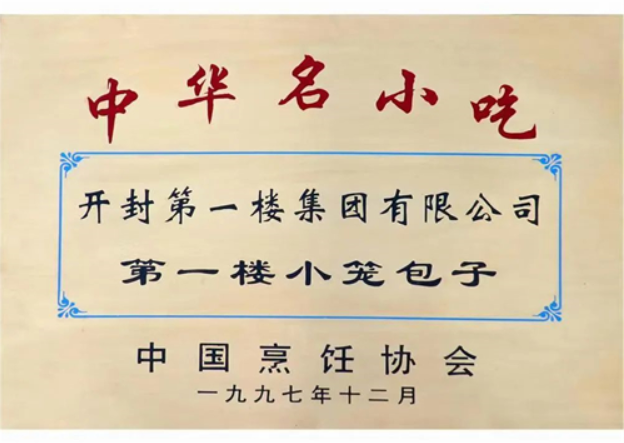 中华名小吃
开封第一楼集团有限公司
第一楼小笼包子
中国烹饪协会
一九九七年十二月